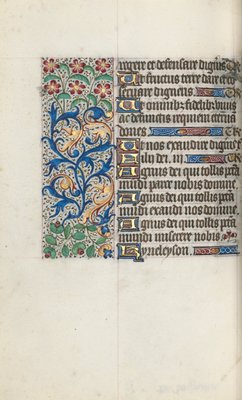 gerere et defensare digneris Te
Ut fructus terre dare et co
seruare digneris Te
Ut omnibus fidelibus
defunctis requiem eterna
dones
Ut nos exaudire digneris
Fili dei
Agnus dei qui tollis pcta
mudi parce nobis domine.
Agnus dei qui tollis pcta
mudi exaudi nos domine.
Agnus dei qui tollis pcta
mundi miserere nobis
Kyrieleyson.